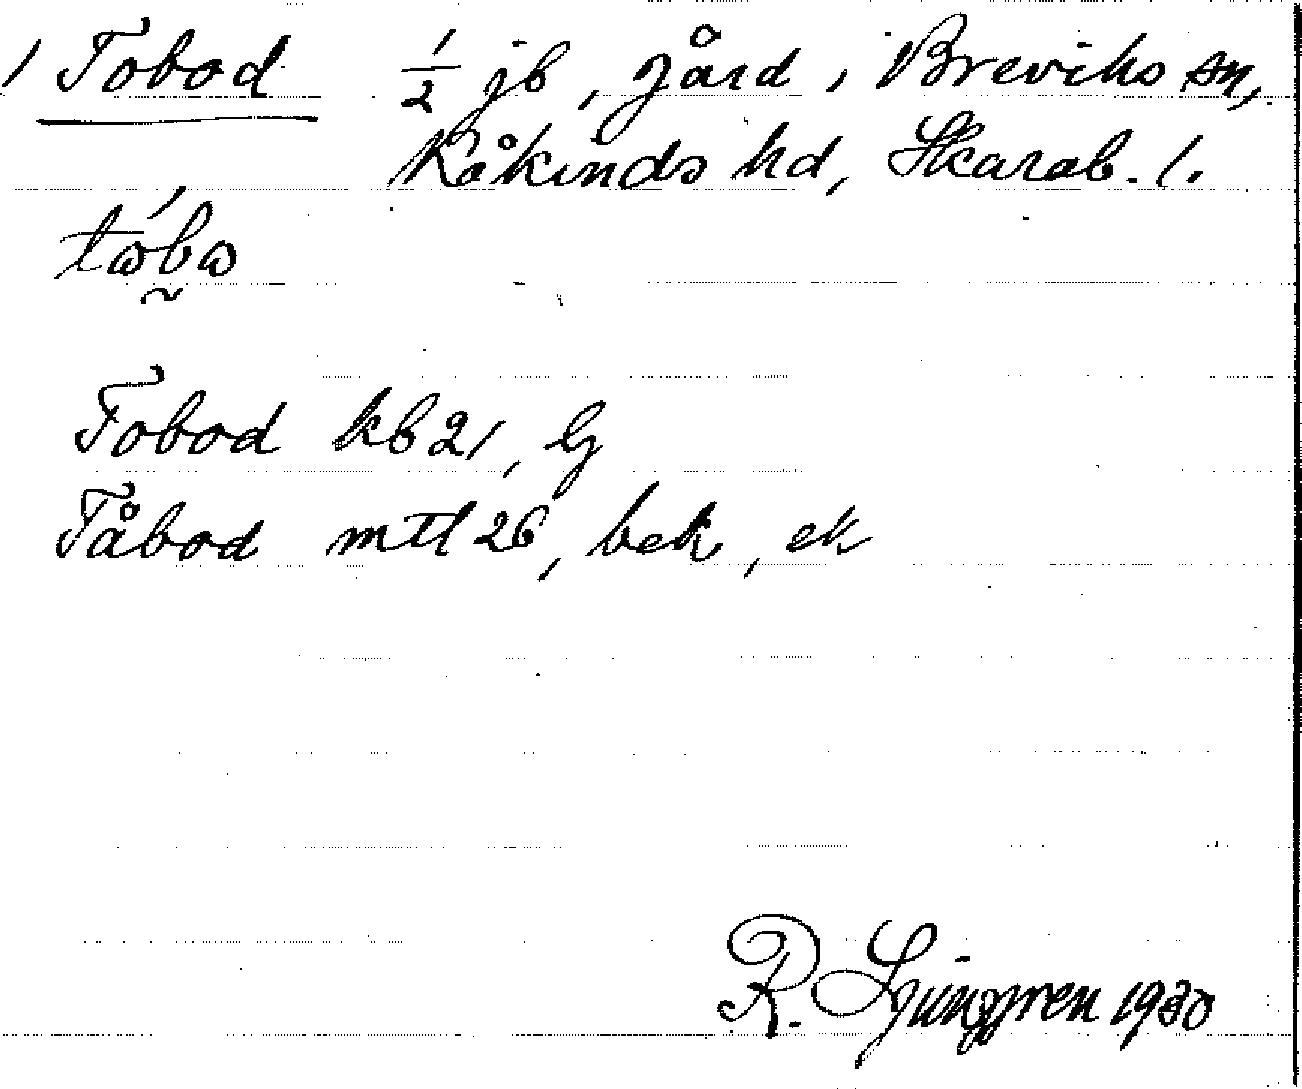 1 Tobod ½ jb, gård, Breviks sn,
Kåkinds hd, Skarab. l.
Tobod kb 21, G
Tåbod mtl 26, bek, ek
R. Ljunggren 1930